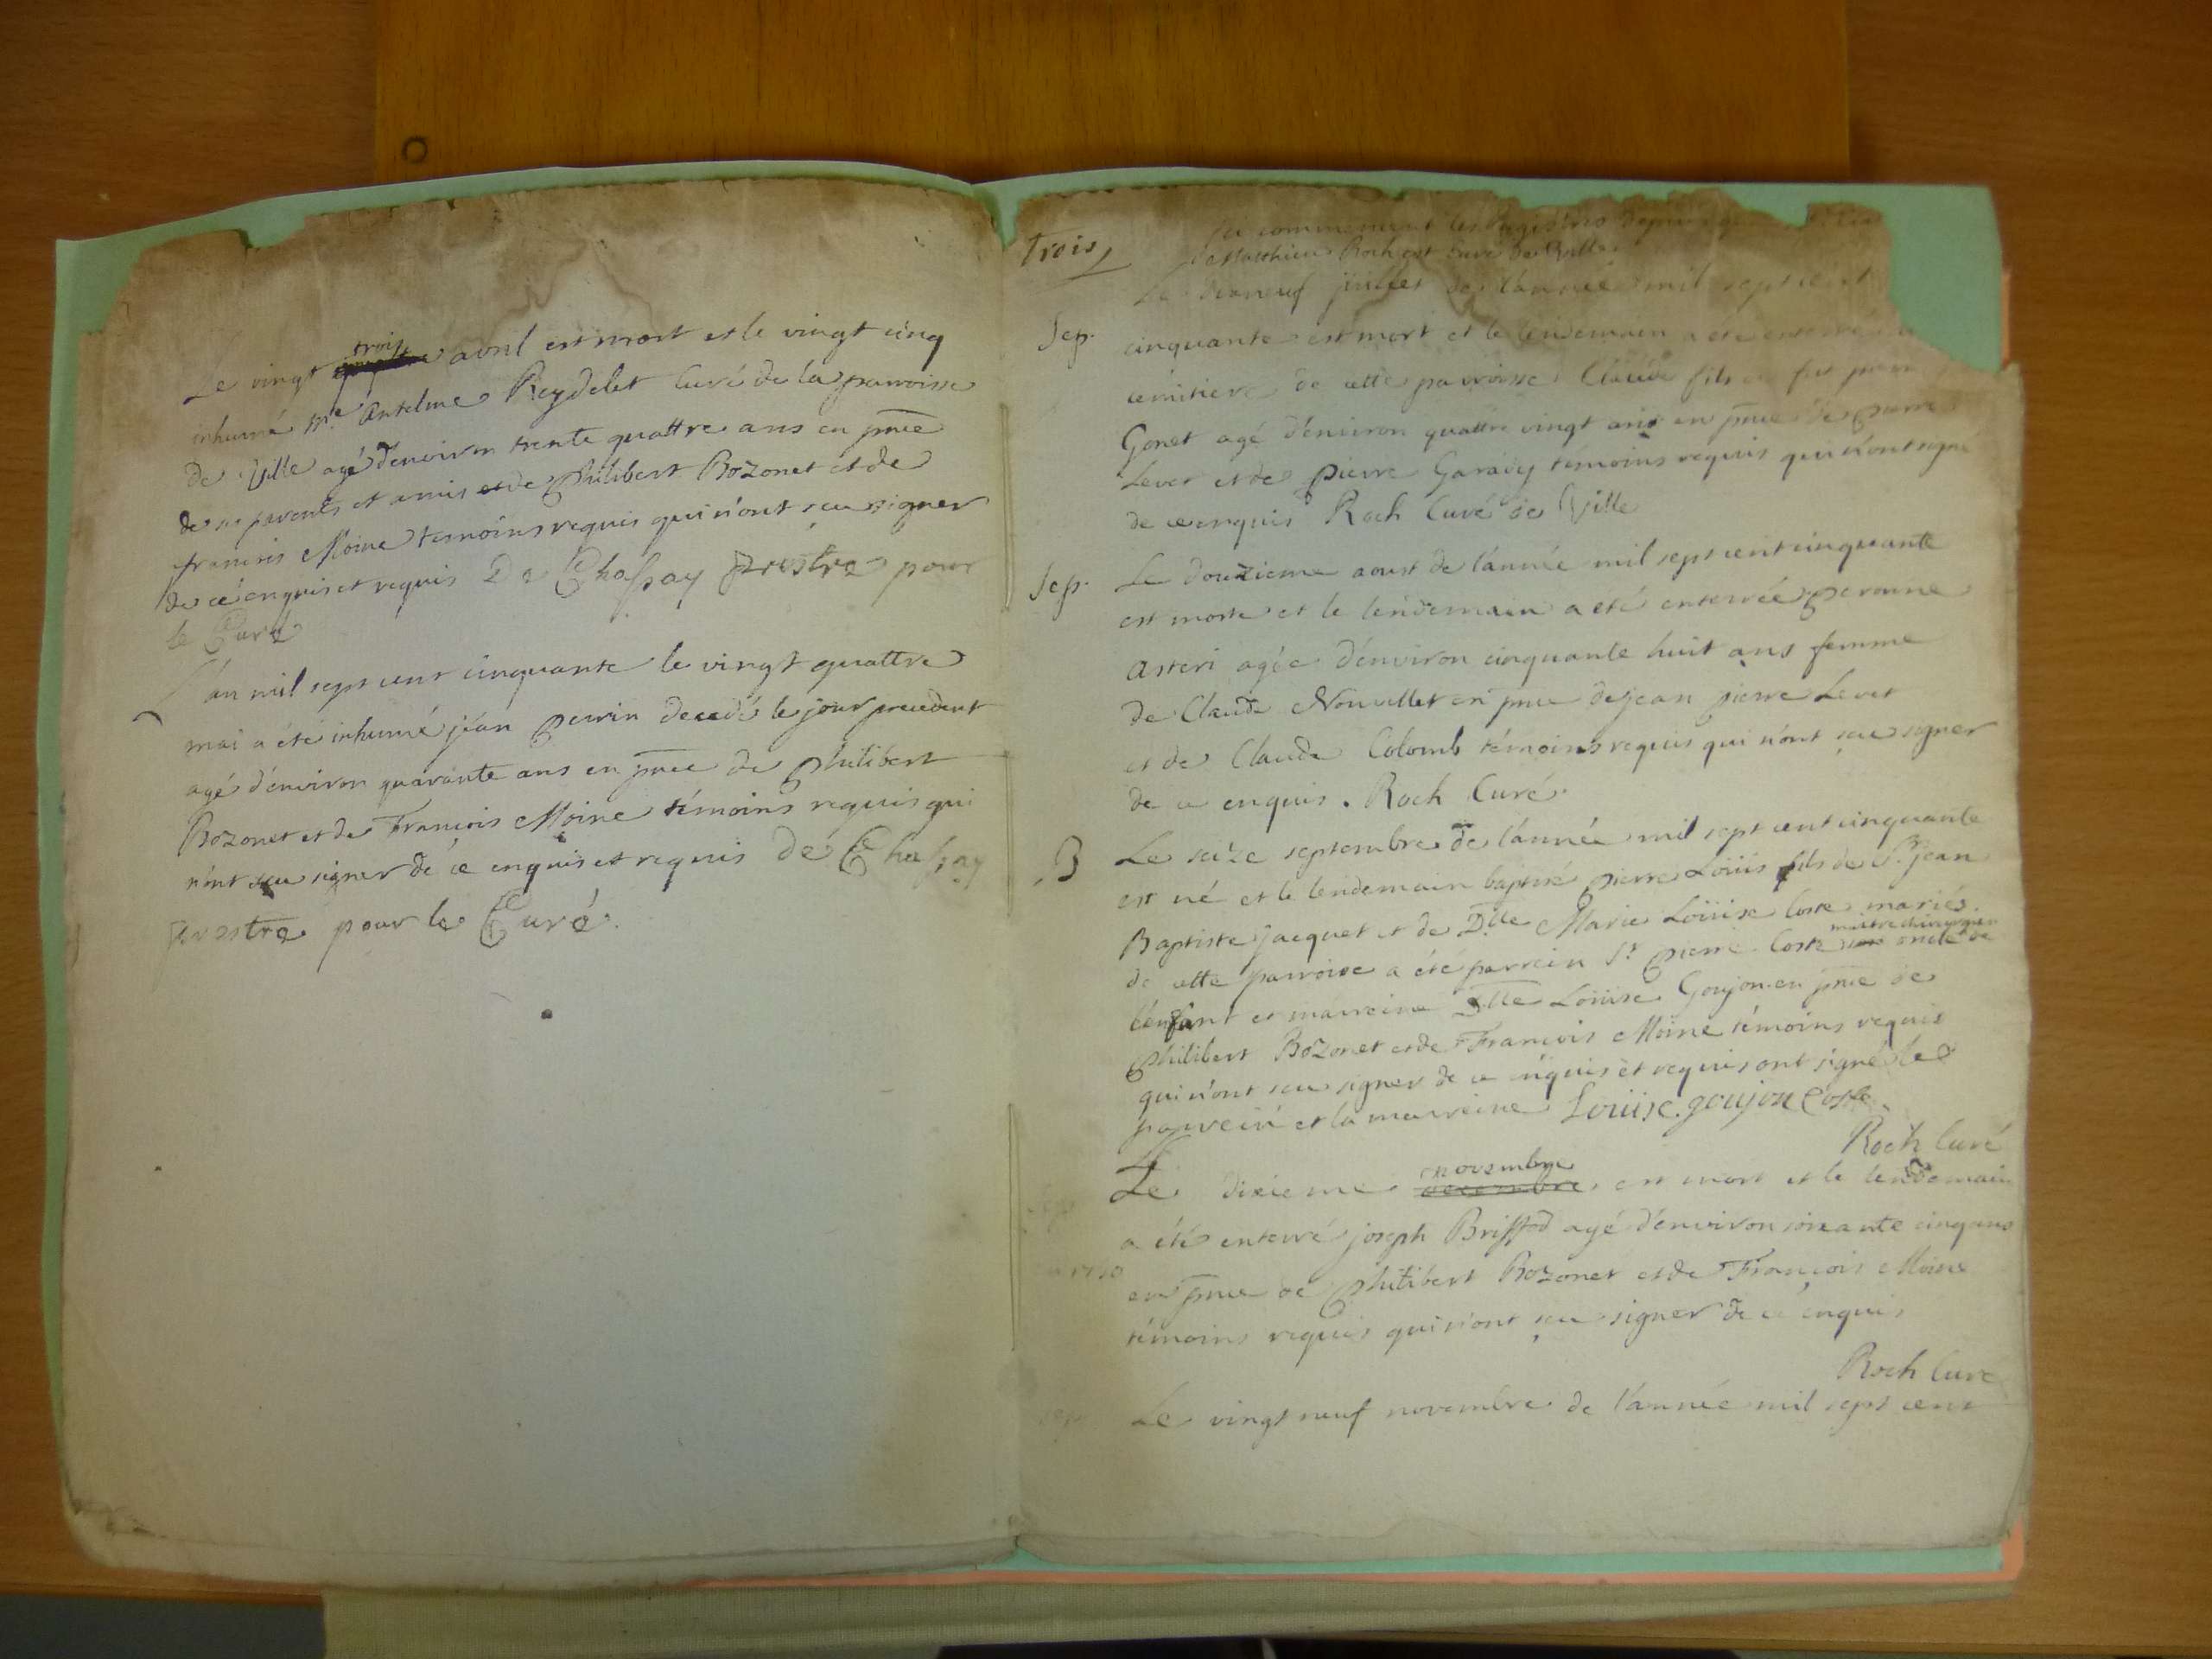 Le vingt trois avril est mort et le vingt cinq
inhumé Mre Antelme Reydelet Curé de la parroisse
de Ville agé d'environ trente quattre ans en pnce
de ses parents et amis et de Philibert Bozonet et de
francois Moine temoins requis qui n'ont sçu signer
de ce enquis et requis De Chassay prestre pour
le Curé
L'an mil sept cent cinquante le vingt quattre
mai a été inhumé jean perrin decedé le jour precedent
agé d'environ quarante ans en pnce de Philibert
Bozonet et de François Moine témoins requis qui
n'ont sçu signer de ce enquis et requis de Chassay
prestre pour le Curé.
Trois
ici commencent les Registres depuis
Matthieu Roch est Curé de Ville
Le dixneuf juillet de l'année mil sept cent
Sep. cinquante est mort et le lendemain a été enterré
cemitiere de cette parroisse Claude fils de feu
Gonet agé d'environ quattre vingt ans en pnce de pierre
Levet et de pierre témoins requis qui n'ont signé
de ce enquis Roch Curé de Ville
Sep. Le douzieme aoust de l'année mil sept cent cinquante
est morte et le lendemain a été enterrée peronne
Asteri agée d'environ cinquante huit ans femme
de Claude Nouvellet en pnce de jean pierre Levet
et de Claude Colomb témoins requis qui n'ont sçu signer
de ce enquis. Roch Curé.
B Le seize septembre de l'année mil sept cent cinquante
est né et le lendemain baptisé pierre Loüis fils de Sr jean
Baptiste jacquet et de Dlle Marie Loüise Coste mariés
de cette parroisse a été parrein Sr pierre Coste maitre chirurgien oncle de
l'enfant et marreine Dlle Loüise Goujon en pnce de
Philibert Bozonet et de François Moine témoins requis
qui n'ont sçu signer de ce enquis et requis ont signé le
parrein et la marreine Loüise goujon Coste
Roch Curé
Le dixieme novembre est mort et le lendemain
a été enterré joseph Briffod agé d'environ soixante cinq ans
1750
en pnce de Philibert Bozonet et de François Moine
témoins requis qui n'ont sçu signer de ce enquis
Roch Curé
Sep. Le vingt neuf novembre de l'année mil sept cent